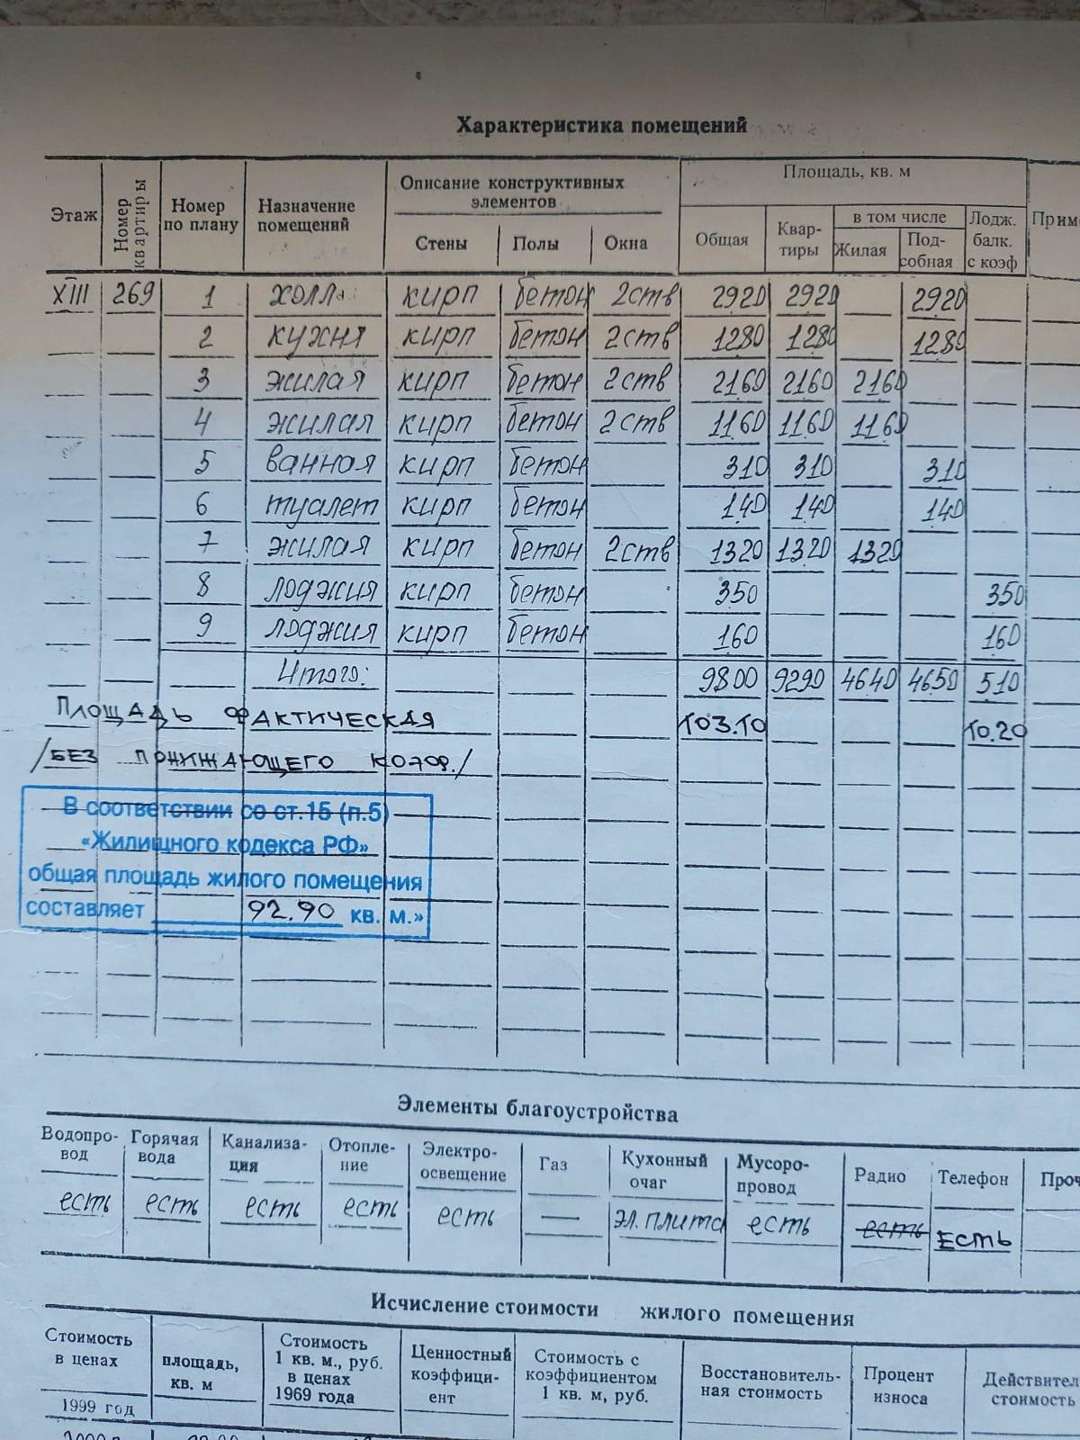 Характеристика помещений
Этаж Номер квартиры Номер по плану Назначение помещений Описание конструктивных элементов Площадь, кв. м
Стены Полы Окна Общая Квар-тиры в том числе Лодж. балк. с коэф Прим
Жилая Под-собная
XIII 269 1 холл кирп бетон 2ств 2920 2920 2920
2 кухня кирп бетон 2ств 1280 1280 1280
3 жилая кирп бетон 2ств 2160 2160 2160
4 жилая кирп бетон 2ств 1160 1160 1160
5 ванная кирп бетон 310 310 310
6 туалет кирп бетон 140 140 140
7 жилая кирп бетон 2ств 1320 1320 1320
8 лоджия кирп бетон 350 350
9 лоджия кирп бетон 160 160
Итого: 9800 9290 4640 4650 510
Площадь фактическая 103.10 10.20
/без понижающего коэф./
В соответствии со ст.15 (п.5)
«Жилищного кодекса РФ»
общая площадь жилого помещения
составляет 92.90 кв. м.»
Элементы благоустройства
Водопро-вод Горячая вода Канализа-ция Отопле-ние Электро-освещение Газ Кухонный очаг Мусоро-провод Радио Телефон Проч
есть есть есть есть есть — эл. плита есть есть есть
Исчисление стоимости жилого помещения
Стоимость в ценах площадь, кв. м Стоимость 1 кв. м., руб. в ценах 1969 года Ценностный коэффици-ент Стоимость с коэффициентом 1 кв. м, руб. Восстановитель-ная стоимость Процент износа Действител стоимость
1999 год